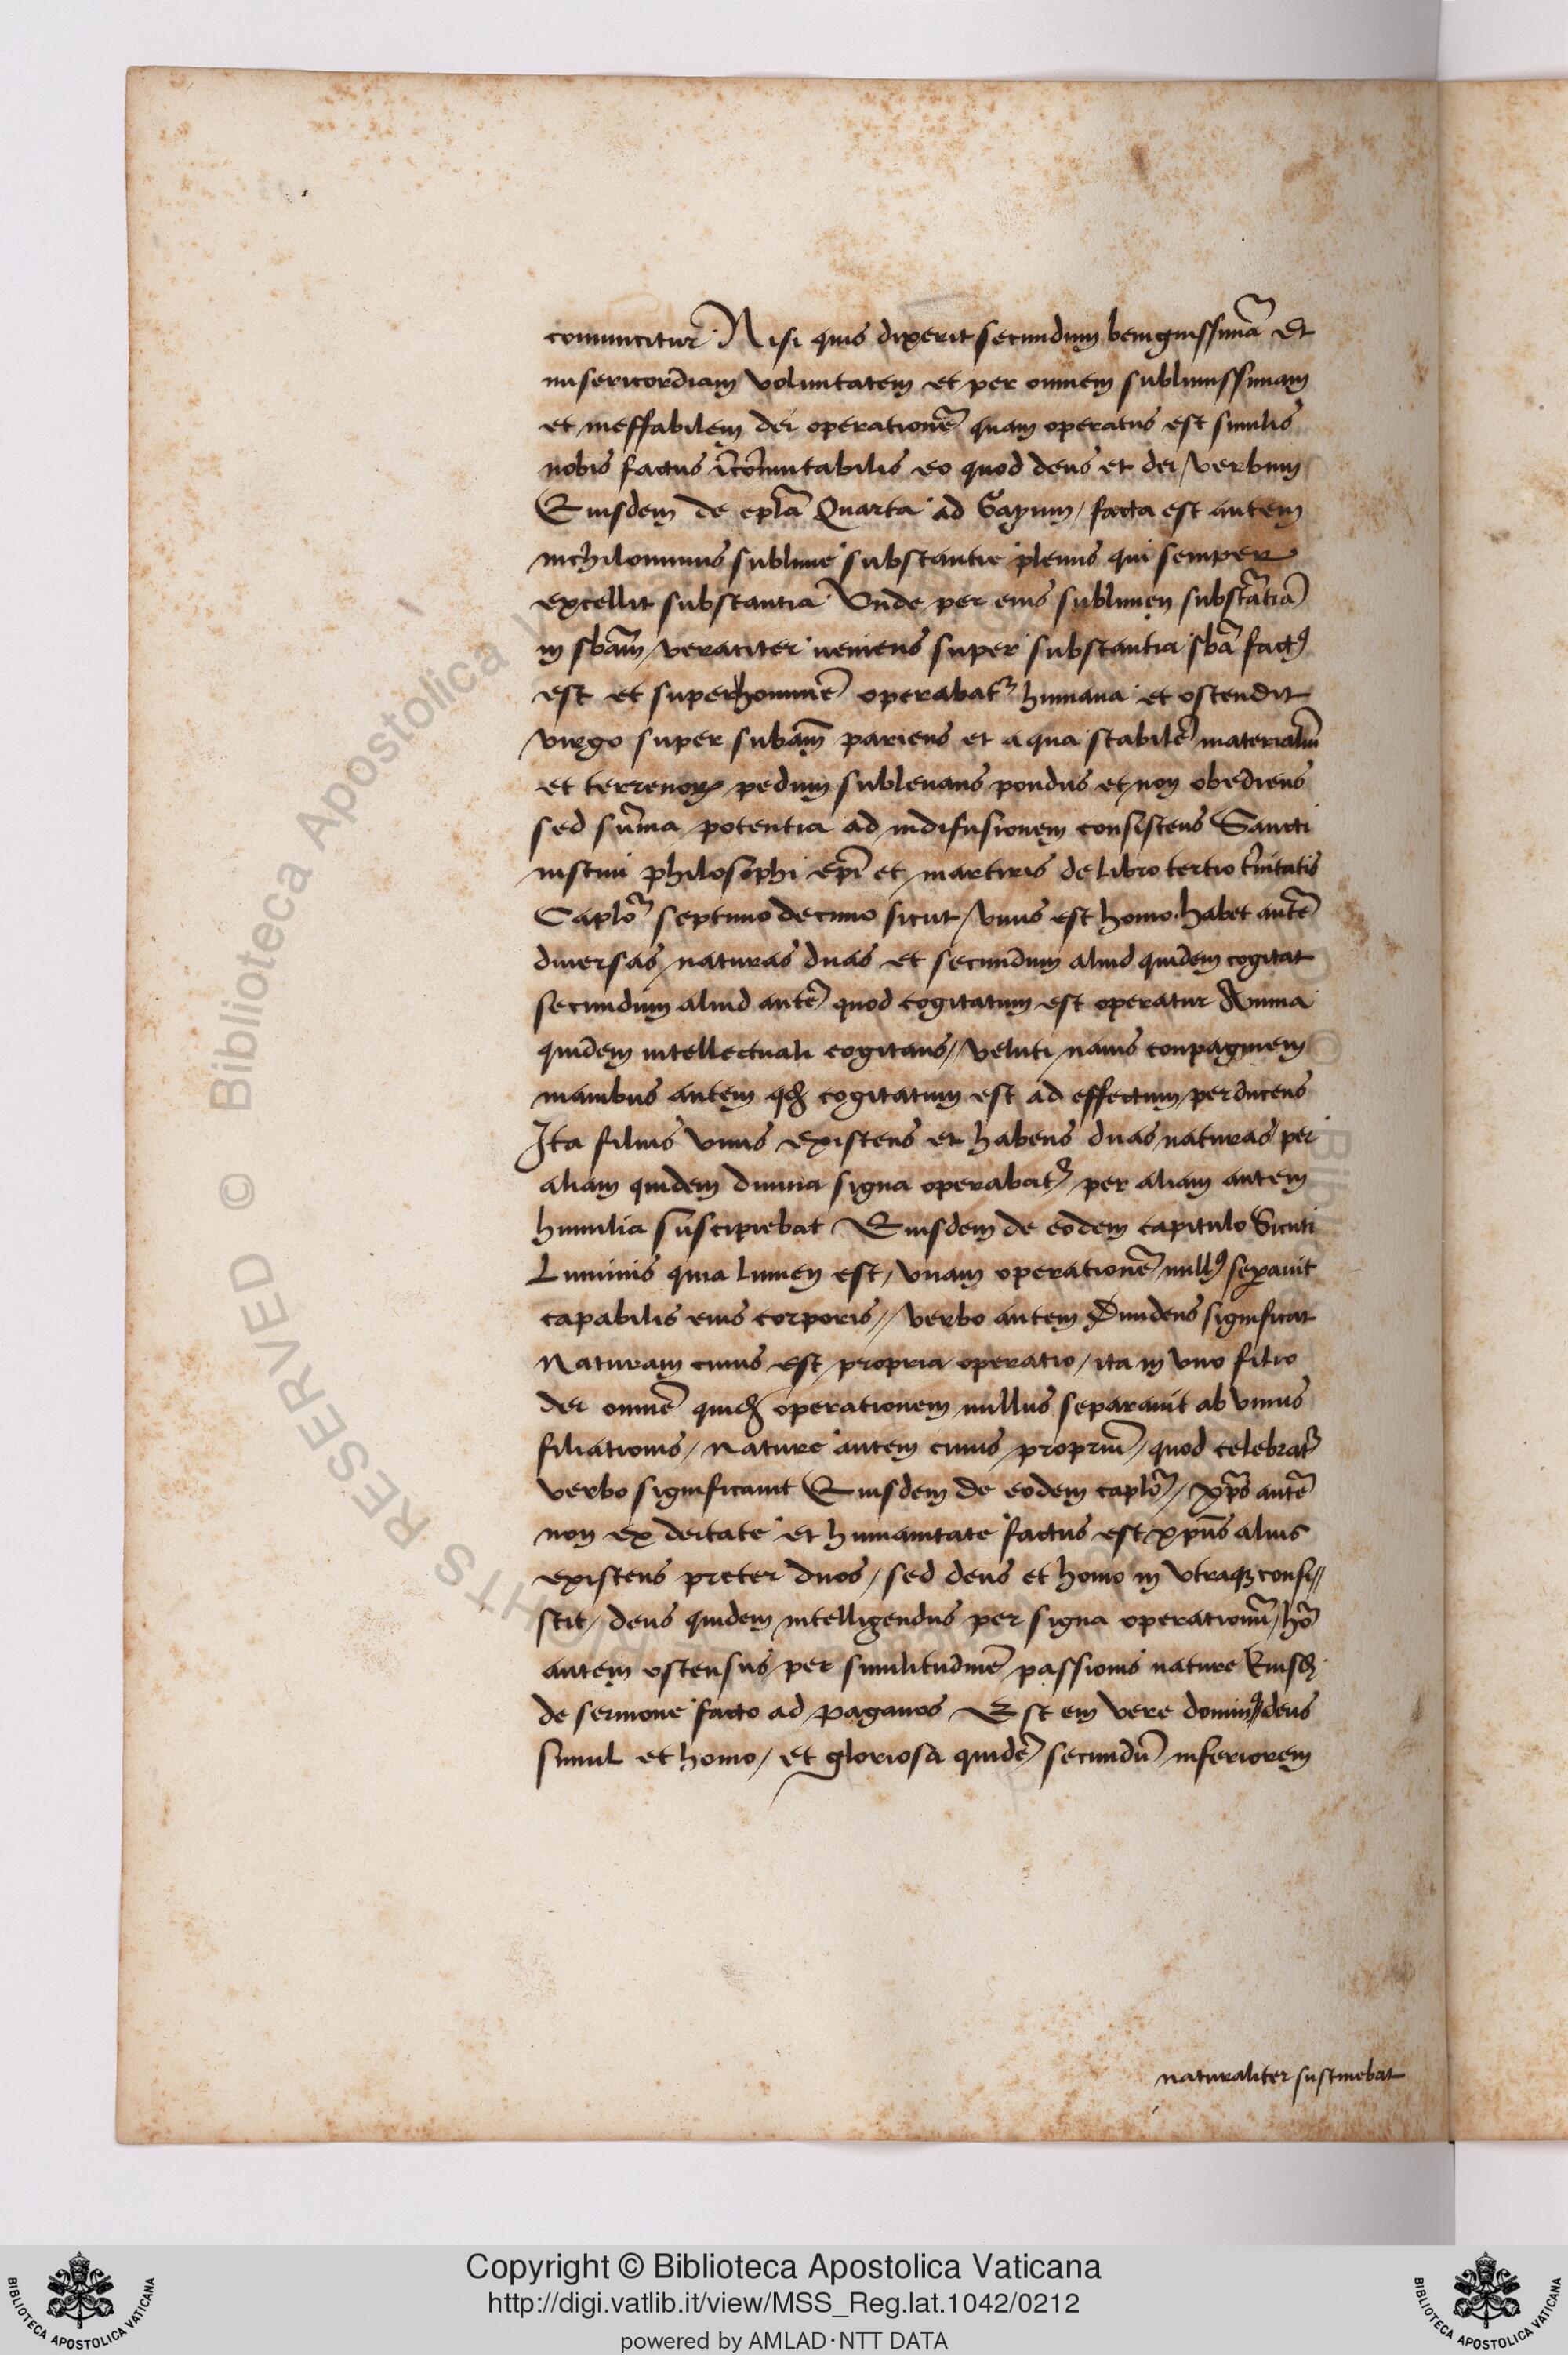 comunicitur Nisi quis dixerit secundum benignissimā Et
misericordiam voluntatem et per omnem sublimissimam
et ineffabilem dei operationē quam operatus est similis
nobis factus īcōmutabilis eo quod deus et dei verbum
Eiusdem de ep̄la Quarta ad Gayum / facta est autem
nichilominus sublime substantie plenus qui semper
excellit substantia Unde per eius sublimen substātiā
in sb̄am veraciter ueniens super substantia sb̄a factꝰ
est et superhominē operabatr̄ humana et ostendit
virgo super sub̄am pariens et aqua stabilē materialiū
et terrenoꝝ pedum sublevans pondus et non obediens
sed sūma potentia ad indifusionem consistens Sancti
iustini philosophi ep̄i et martiris de libro tertio t̄nitatis
Caplo septimo decimo sicut / vnus est homo habet autē
diuersas naturas duas et secundum aliud quidem cogitat
secundum aliud autē quod cogitatum est operatur Anima
quidem intellectuali cogitans / veluti nauis conpaginem
manibus autem qđ cogitatum est ad effectum perducens
Ita filius vnus existens et habens duas naturas per
aliam quidem diuina signa operabatr̄ per aliam autem
humilia suscipiebat Eiusdem de eodem capitulo Sicuti
Luminis quia lumen est / vnam operationē nullꝰ sepauit
capabilis eius corporis // verbo autem Diuidens significat
Naturam cuius est propria operatio / ita in vno filio
dei omnē quidē operationem nullus separauit ab vnius
filiationis / nature autem cuius propriū / quod celebratr̄
verbo significauit Eiusdem de eodem caplō / xp̄s autē
non ex deitate et humanitate factus est xp̄us alius
existens preter duos / sed deus et homo in vtraqꝫ consi//
stit / deus quidem intelligendus per signa operationū / hō
autem ostensus per similitudinē passionis nature Eiusdē
de sermone facto ad paganos Est em vere dominꝰ deus
simul et homo / et gloriosa quidē secundū inferiorem
naturaliter sustinebat
Copyright © Biblioteca Apostolica Vaticana
http://digi.vatlib.it/view/MSS_Reg.lat.1042/0212
powered by AMLAD·NTT DATA